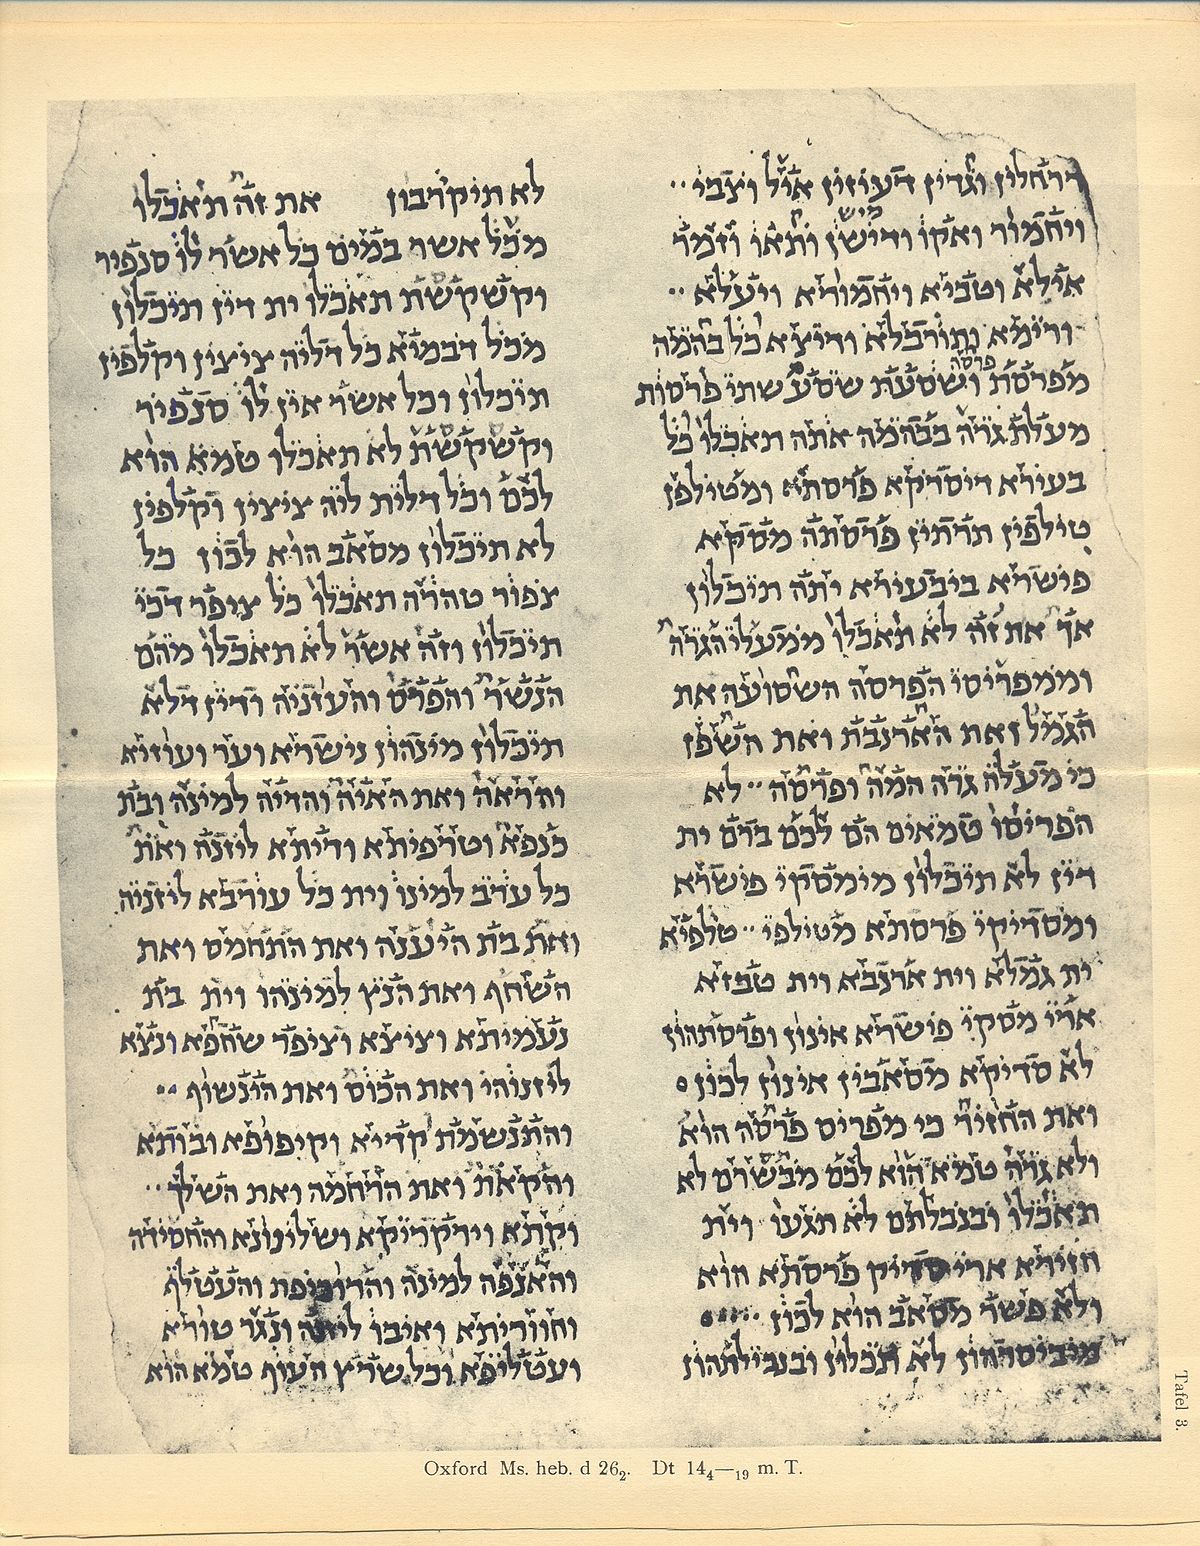 דרחלין וגדין דעיזין איל וצבי
ויחמור ואקו ודישן ותאו וזמר
דיש
אילא וטביא ויחמוריא ויעלא
ורימא ותורבלא ודיצא כל בהמה
פרסה
מפרסת ושסעת שסע שתי פרסות
מעלת גרה בבהמה אתה תאכלו כל
בעירא דיסדיקא פרסתא ומטילפן
טילפין תרתין פרסתה מסקא
פישרא ביבעירא יתה תיכלון
אך את זה לא תאכלו ממעלי הגרה
וממפריסי הפרסה השסועה את
הגמל ואת הארנבת ואת השפן
כי מעלה גרה המה ופרסה לא
הפריסו טמאים הם לכם ברם ית
דין לא תיכלון מימסקי פישרא
ומסדיקי פרסתא מטילפי טלפיא
ית גמלא וית ארנבא וית טבזא
ארי מסקי פישרא אינון ופרסתהון
לא סדיקא מסאבין אינון לכון
ואת החזיר כי מפריס פרסה הוא
ולא גרה טמא הוא לכם מבשרם לא
תאכלו ובנבלתם לא תגעו וית
חזירא ארי סדיק פרסתא הוא
ולא פשר מסאב הוא לכון
מיביסרהון לא תכלון ובנבילתהון
לא תיקרבון את זה תאכלו
מכל אשר במים כל אשר לו סנפיר
וקשקשת תאכלו ית דין תיכלון
מכל דבמיא כל דליה ציצין וקלפין
תיכלון וכל אשר אין לו סנפיר
וקשקשת לא תאכלו טמא הוא
לכם וכל דלית ליה ציצין וקלפין
לא תיכלון מסאב הוא לכון כל
צפור טהרה תאכלו כל ציפר דכי
תיכלון וזה אשר לא תאכלו מהם
הנשר והפרס והעזניה ודין דלא
תיכלון מינהון נישרא וער ועוזיא
והראה ואת האיה והדיה למינה ובת
כנפא וטרפיתא ודיתא ליזנה ואת
כל ערב למינו וית כל עורבא ליזניה
ואת בת היענה ואת התחמס ואת
השחף ואת הנץ למינהו וית בת
נעמיתא וציצא וציפר שחפא ונצא
ליזנוהי ואת הכוס ואת הינשוף
והתנשמת קדיא וקיפופא ובותא
והקאת ואת הרחמה ואת השלך
וקתא וירקריקא ושלינונא והחסידה
והאנפה למינה והדוכיפת והעטלף
וחווריתא ואיבו ליזנה ונגר טורא
ועטליפא וכל שריץ העוף טמא הוא
Oxford Ms. heb. d 26₂. Dt 14₄—₁₉ m. T.
Tafel 3.